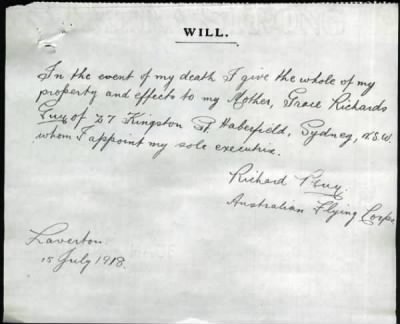 WILL.
In the event of my death I give the whole of my
property and effects to my Mother, Grace Richards
Guy of 27 Kingston St. Haberfield, Sydney, N.S.W.
whom I appoint my sole executrix.
Richard Guy.
Australian Flying Corps
Laverton.
15 July 1918.